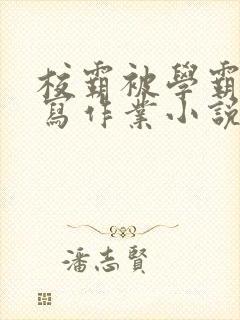 校霸被學霸
寫作業小説
潘志賢